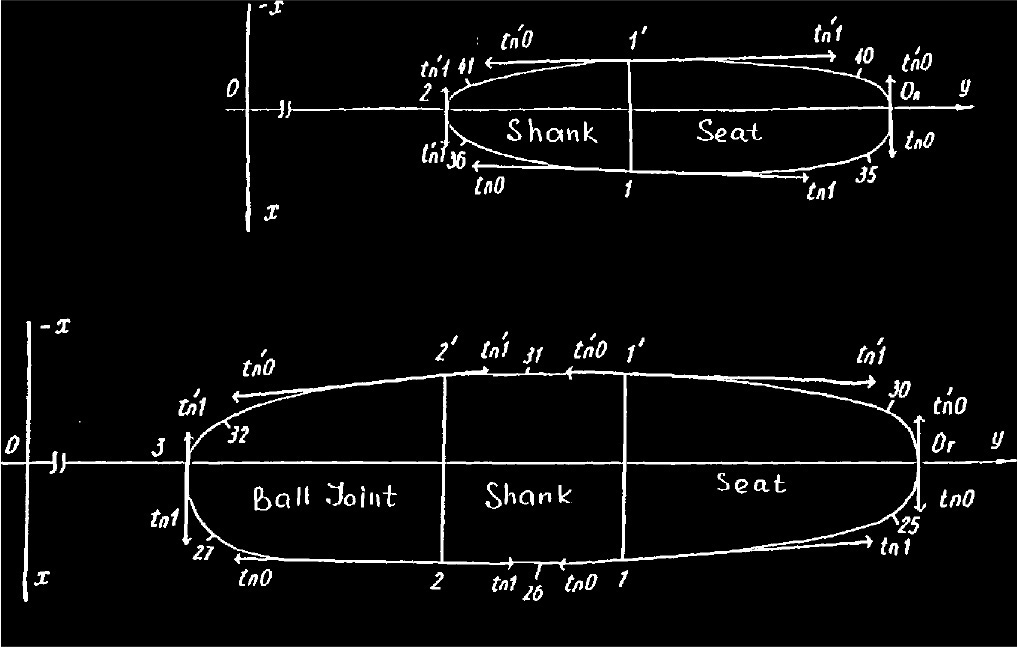 -x
tn'0 1' tn'1
tn'1 41 40 tn'0
0 2 Оп y
Shank Seat
tn'1 36 35 tn0
tn0 1 tn1
x
-x
2' tn'1 31 tn'0 1' tn'1
tn'0 30
tn'1 32 tn'0
0 3 Or y
Ball Joint Shank Seat
tn1 27 25 tn0
tn1
x tn0 2 tn1 26 tn0 1